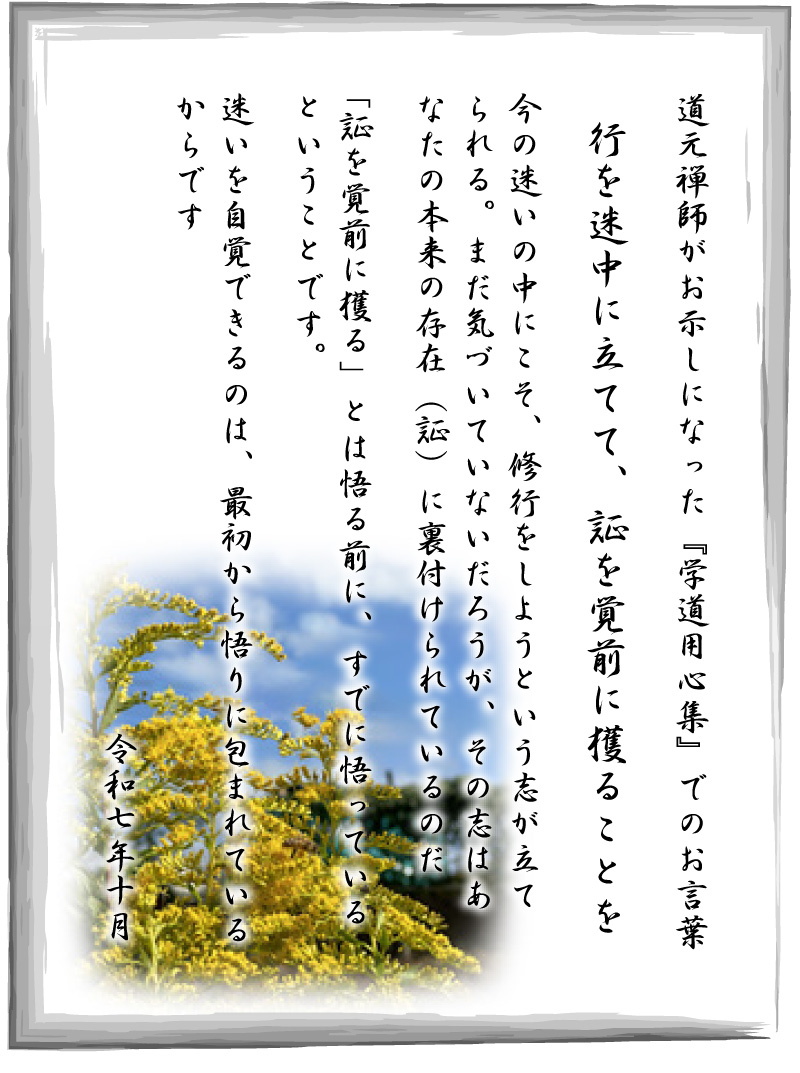 道元禅師がお示しになった『学道用心集』でのお言葉
行を迷中に立てて、証を覚前に獲ることを
今の迷いの中にこそ、修行をしようという志が立て
られる。まだ気づいていないだろうが、その志はあ
なたの本来の存在（証）に裏付けられているのだ
「証を覚前に獲る」とは悟る前に、すでに悟っている
ということです。
迷いを自覚できるのは、最初から悟りに包まれている
からです
令和七年十月